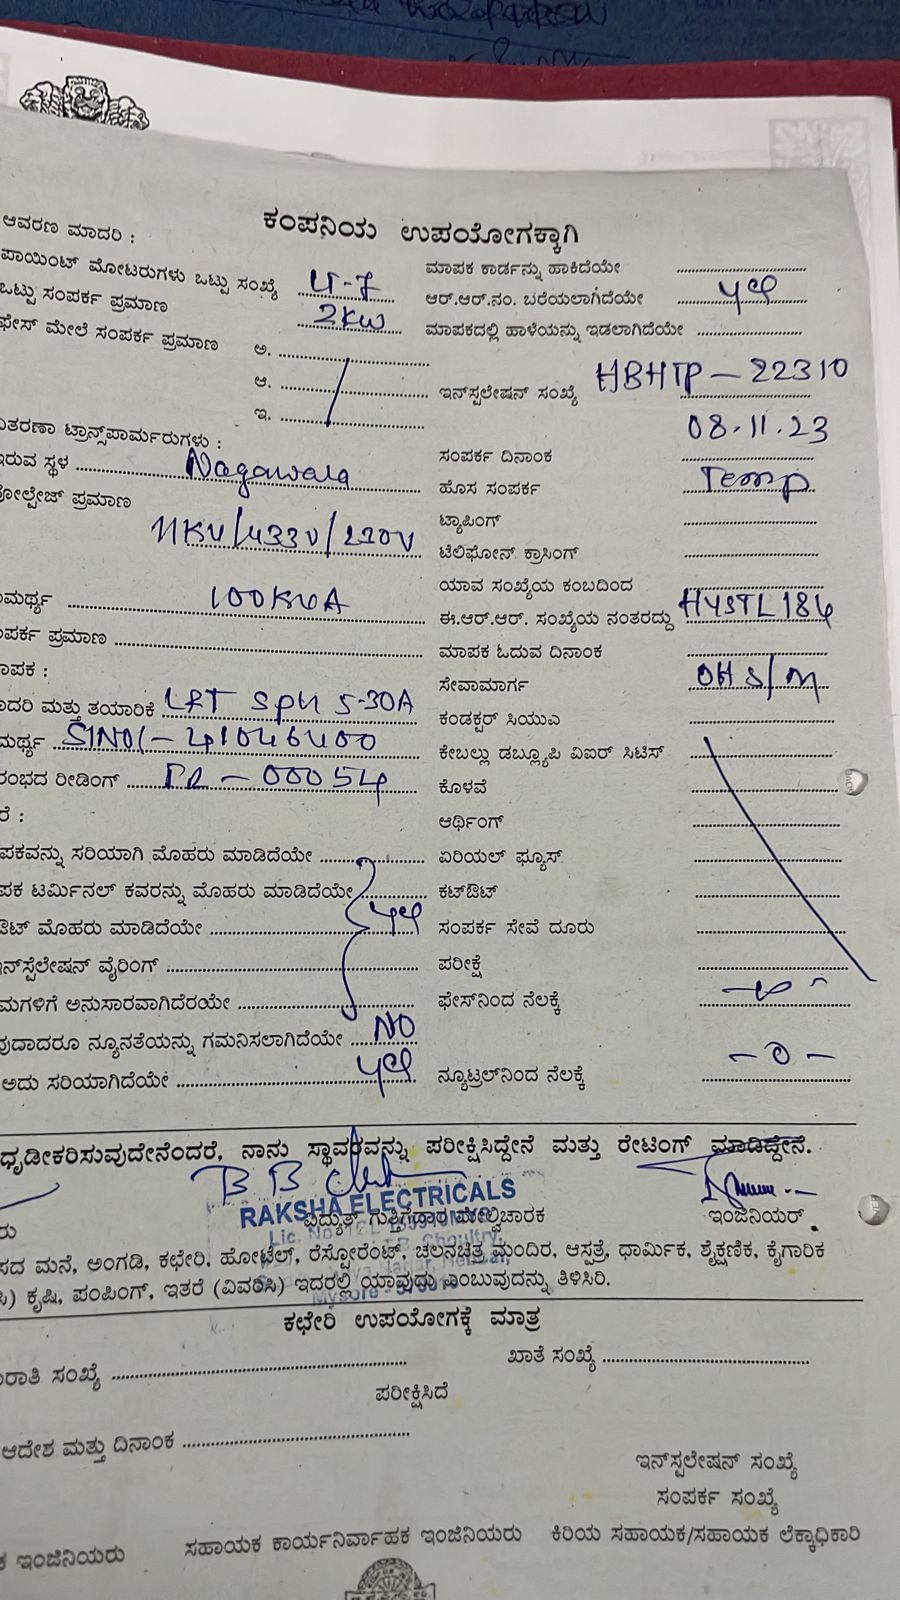 ಕಂಪನಿಯ ಉಪಯೋಗಕ್ಕಾಗಿ
ಆವರಣ ಮಾದರಿ :
ಪಾಯಿಂಟ್ ಮೋಟರುಗಳು ಒಟ್ಟು ಸಂಖ್ಯೆ 4-7
ಮಾಪಕ ಕಾರ್ಡನ್ನು ಹಾಕಿದೆಯೇ
ಒಟ್ಟು ಸಂಪರ್ಕ ಪ್ರಮಾಣ 2KW
ಆರ್.ಆರ್.ನಂ. ಬರೆಯಲಾಗಿದೆಯೇ yes
ಫೇಸ್ ಮೇಲೆ ಸಂಪರ್ಕ ಪ್ರಮಾಣ ಅ.
ಮಾಪಕದಲ್ಲಿ ಹಾಳೆಯನ್ನು ಇಡಲಾಗಿದೆಯೇ
ಆ.
ಇನ್‌ಸ್ಟಲೇಷನ್ ಸಂಖ್ಯೆ HBHTP - 22310
ಇ.
08.11.23
ಟ್ರಾನ್ಸ್‌ಫಾರ್ಮರುಗಳು :
ಸಂಪರ್ಕ ದಿನಾಂಕ
ಇರುವ ಸ್ಥಳ Nagawala
ಹೊಸ ಸಂಪರ್ಕ Temp
ಪ್ರಮಾಣ
ಟ್ಯಾಪಿಂಗ್
11KV/433V/220V
ಟೆಲಿಫೋನ್ ಕ್ರಾಸಿಂಗ್
ಯಾವ ಸಂಖ್ಯೆಯ ಕಂಬದಿಂದ
100KVA
ಈ.ಆರ್.ಆರ್. ಸಂಖ್ಯೆಯ ನಂತರದ್ದು HYSTL184
ಪ್ರಮಾಣ
ಮಾಪಕ ಓದುವ ದಿನಾಂಕ
ಸೇವಾಮಾರ್ಗ OH S/M
ಮತ್ತು ತಯಾರಿಕೆ L&T SPH 5-30A
ಕಂಡಕ್ಟರ್ ಸಿಯುಎ
S1NO/- 41046400
ಕೇಬಲ್ಲು ಡಬ್ಲ್ಯೂಪಿ ವಿಐರ್ ಸಿಟಿಸ್
ರೀಡಿಂಗ್ - 00054
ಕೊಳವೆ
ಆರ್ಥಿಂಗ್
ಸರಿಯಾಗಿ ಮೊಹರು ಮಾಡಿದೆಯೇ
ಏರಿಯಲ್ ಫ್ಯೂಸ್
ಟರ್ಮಿನಲ್ ಕವರನ್ನು ಮೊಹರು ಮಾಡಿದೆಯೇ
ಕಟ್‌ಔಟ್
ಮೊಹರು ಮಾಡಿದೆಯೇ yes
ಸಂಪರ್ಕ ಸೇವೆ ದೂರು
ವೈರಿಂಗ್
ಪರೀಕ್ಷೆ
ಅನುಸಾರವಾಗಿದೆರಯೇ
ಫೇಸ್‌ನಿಂದ ನೆಲಕ್ಕೆ
ನ್ಯೂನತೆಯನ್ನು ಗಮನಿಸಲಾಗಿದೆಯೇ NO
ಅದು ಸರಿಯಾಗಿದೆಯೇ yes
ನ್ಯೂಟ್ರಲ್‌ನಿಂದ ನೆಲಕ್ಕೆ - 0 -
ಧೃಡೀಕರಿಸುವುದೇನೆಂದರೆ, ನಾನು ಸ್ಥಾವರವನ್ನು ಪರೀಕ್ಷಿಸಿದ್ದೇನೆ ಮತ್ತು ರೇಟಿಂಗ್ ಮಾಡಿದ್ದೇನೆ.
RAKSHA ELECTRICALS
ವಿದ್ಯುತ್ ಗುತ್ತಿಗೆದಾರ ಮೇಲ್ವಿಚಾರಕ
ಇಂಜಿನಿಯರ್
ಮನೆ, ಅಂಗಡಿ, ಕಛೇರಿ, ಹೋಟೆಲ್, ರೆಸ್ಟೋರೆಂಟ್, ಚಲನಚಿತ್ರ ಮಂದಿರ, ಆಸ್ಪತ್ರೆ, ಧಾರ್ಮಿಕ, ಶೈಕ್ಷಣಿಕ, ಕೈಗಾರಿಕ
ಕೃಷಿ, ಪಂಪಿಂಗ್, ಇತರೆ (ವಿವರಿಸಿ) ಇದರಲ್ಲಿ ಯಾವುದು ಎಂಬುವುದನ್ನು ತಿಳಿಸಿರಿ.
ಕಛೇರಿ ಉಪಯೋಗಕ್ಕೆ ಮಾತ್ರ
ಸಂಖ್ಯೆ
ಖಾತೆ ಸಂಖ್ಯೆ
ಪರೀಕ್ಷಿಸಿದೆ
ಆದೇಶ ಮತ್ತು ದಿನಾಂಕ
ಇನ್‌ಸ್ಟಲೇಷನ್ ಸಂಖ್ಯೆ
ಸಂಪರ್ಕ ಸಂಖ್ಯೆ
ಇಂಜಿನಿಯರು
ಸಹಾಯಕ ಕಾರ್ಯನಿರ್ವಾಹಕ ಇಂಜಿನಿಯರು
ಕಿರಿಯ ಸಹಾಯಕ/ಸಹಾಯಕ ಲೆಕ್ಕಾಧಿಕಾರಿ